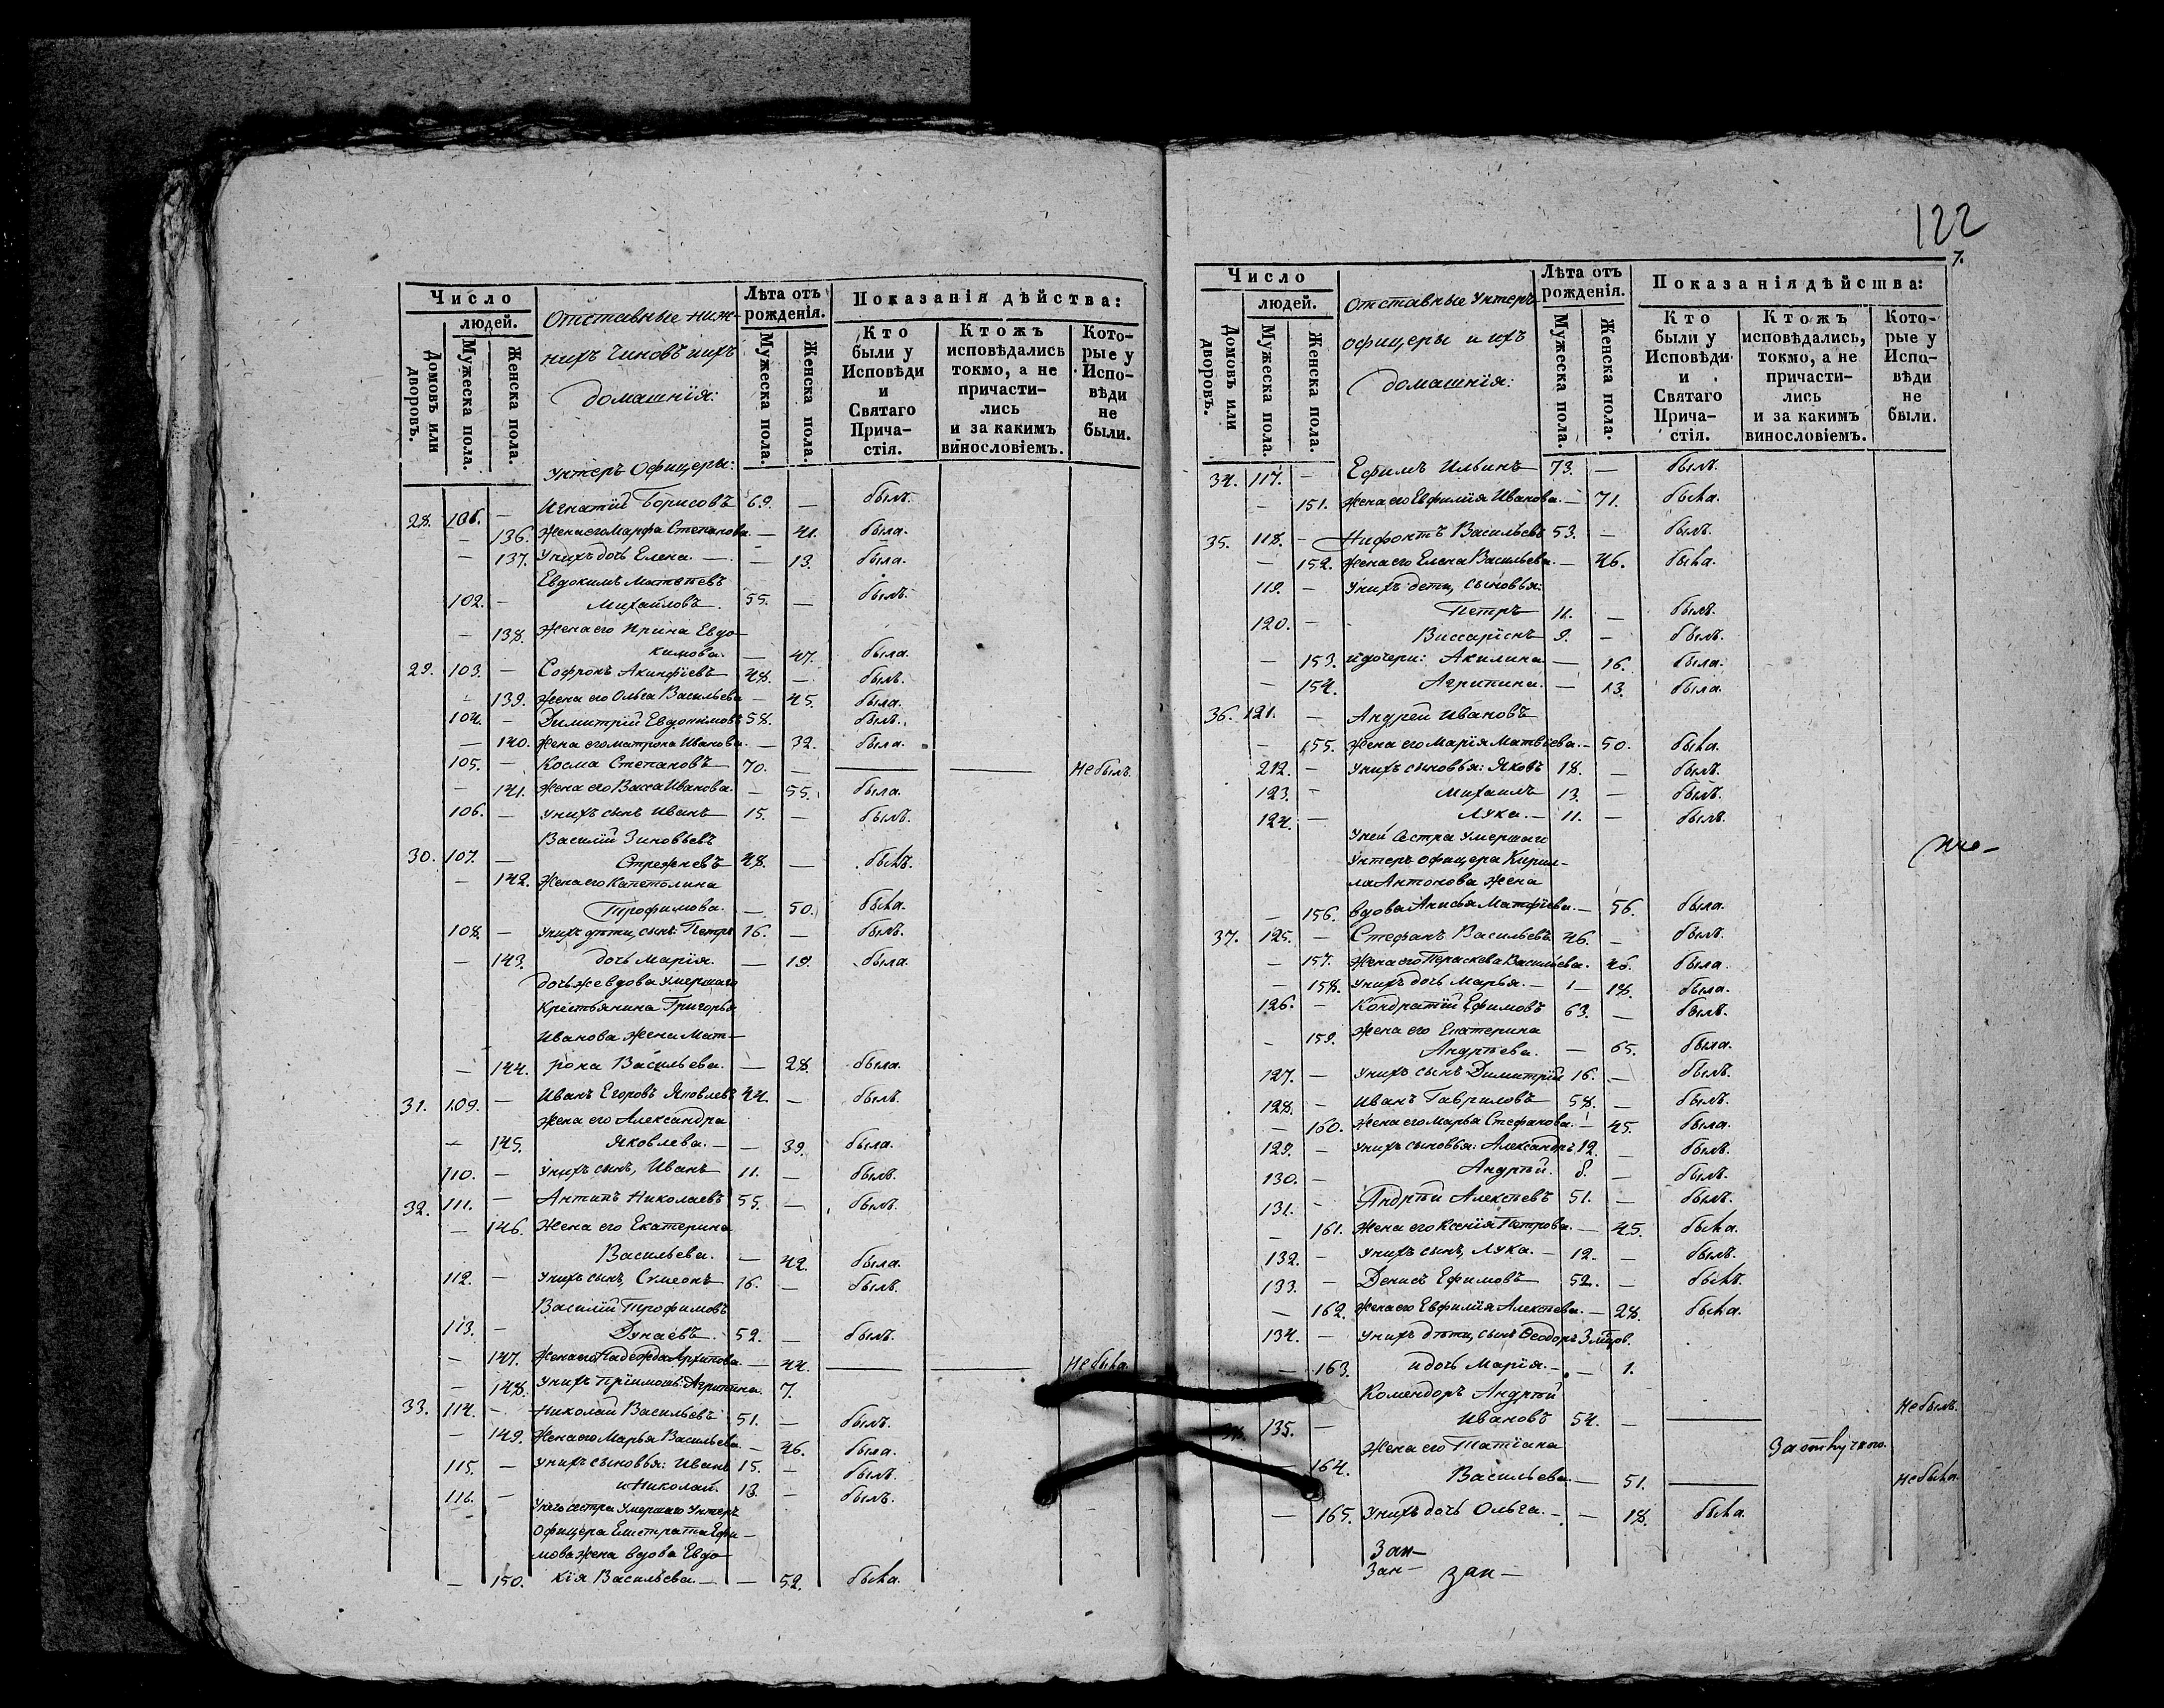 Число
людей.
Домовъ или дворовъ.
Мужеска пола.
Женска пола.
Отставные ниж-
нихъ чиновъ и ихъ
домашнія:
Лѣта отъ рожденія.
Мужеска пола.
Женска пола.
Показанія дѣйства:
Кто были у Исповѣди и Святаго Прича- стія.
Ктожъ исповѣдались токмо, а не причасти- лись и за какимъ винословіемъ.
Кото- рые у Испо- вѣди не были.
Унтеръ Офицеры:
28. — Игнатій Борисовъ 69. — былъ.
— 136. Жена его Марфа Степанова — 41. была.
— 137. У нихъ дочь Елена. — — 13. была.
Евдокимъ Матвѣевъ
102. — Михайловъ. 55. — былъ.
— 138. Жена его Ирина Евдо-
кимова. — 47. была.
29. 103. — Софронъ Акинфіевъ 48. — былъ.
139. Жена его Ольга Васильева — 45. была.
104. — Димитрій Евдокимовъ 58. былъ.
— 140. Жена его Матрона Иванова. — 32. была.
105. — Косма Степановъ 70. — — — Небылъ.
— 141. Жена его Васса Иванова. — 55. была.
106. — У нихъ сынъ Иванъ 15. — былъ.
Василій Зиновьевъ
30. 107. — Стрежневъ 48. — былъ.
— 142. Жена его Капетолина
Трофимова. — 50. была.
108. — У нихъ дѣти, сынъ: Петръ 16. — былъ.
— 143. дочь Марія. — 19. была.
дочь же вдова умершаго
Крестьянина Григорья
Иванова жена Мат-
— 144. рона Васильева. — 28. была.
31. 109. — Иванъ Егоровъ Яковлевъ 44. — былъ.
Жена его Александра
— 145. Яковлева. — — 39. была.
110. — У нихъ сынъ, Иванъ 11. — былъ.
32. 111. — Антипъ Николаевъ 55. — былъ.
— 146. Жена его Екатерина
Васильева. — 42. была.
112. — У нихъ сынъ, Сумеонъ 16. — былъ.
Василій Трофимовъ
113. — Дунаевъ. 52. — былъ.
— 147. Жена его Надежда Архипова. — 44. — — Небыла.
— 148. У нихъ пріимышъ: Агрипина. 7.
33. 114. — Николай Васильевъ 51. — былъ.
— 149. Жена его Марья Васильева — 46. была.
115. — У нихъ сыновья: Иванъ 15. — былъ.
116. — и Николай. 13. — былъ.
У него сестра умершаго Унтеръ
Офицера Евстрата Ефи-
мова жена вдова Евдо-
— 150. кія Васильева. — — 52. была.
122
7.
Число
людей.
Домовъ или дворовъ.
Мужеска пола.
Женска пола.
Отставные Унтеръ
офицеры и ихъ
домашнія:
Лѣта отъ рожденія.
Мужеска пола.
Женска пола.
Показанія дѣйства:
Кто были у Исповѣди и Святаго Прича- стія.
Ктожъ исповѣдались, токмо, а не причасти- лись и за какимъ винословіемъ.
Кото- рые у Испо- вѣди не были.
34. 117. — Ефимъ Ильинъ 73. — былъ.
— 151. Жена его Евфимія Иванова. — 71. была.
35. 118. — Нифонтъ Васильевъ 53. — былъ.
— 152. Жена его Елена Васильева. — 46. была.
119. — У нихъ дети, сыновья:
Петръ 11. — былъ.
120. — Виссаріонъ 9. — былъ.
— 153. и дочери: Акилина — 16. была.
— 154. Агрипина. — 13. была.
36. 121. — Андрей Ивановъ
— 155. Жена его Марія Матвіева. — 50. была.
212. — У нихъ сыновья: Яковъ 18. — былъ.
123. — Михаилъ 13. — былъ.
124. — Лука. — 11. — былъ.
У ней сестра умершаго
Унтеръ офицера Кирил-
ла Антонова жена
— 156. вдова Анисья Матфіева. — 56. была.
37. 125. — Стефанъ Васильевъ 46. — былъ.
— 157. Жена его Параскева Васильева. 46. была.
— 158. У нихъ дочь Марья. — — 18. была.
126. — Кондратій Ефимовъ 63. — былъ.
— 159. Жена его Екатерина
Андрѣева. — 65. была.
127. — У нихъ сынъ Димитрій 16. — былъ.
128. — Иванъ Гавриловъ 58. — былъ.
— 160. Жена его Марья Стефанова. — 45. была.
129. — У нихъ сыновья: Александръ 12. — былъ.
130. — Андрѣй. 8. — былъ.
131. — Андрѣй Алексѣевъ 51. — былъ.
— 161. Жена его Ксенія Петрова. — 45. была.
132. — У нихъ сынъ, Лука. — 12. — былъ.
133. — Денисъ Ефимовъ 52. — былъ.
— 162. Жена его Евфимія Алексѣева. — 28. была.
134. — У нихъ дѣти, сынъ Ѳеодоръ 3 мѣс.
— 163. и дочь Марія. — — 1.
Комендоръ Андрѣй
135. — Ивановъ 54. — — Небылъ.
Жена его Татіана За отлучкою.
164. Васильева — 51. — Небыла.
— 165. У нихъ дочь Ольга. — — 18. была.
Зап-
Зап- зап-